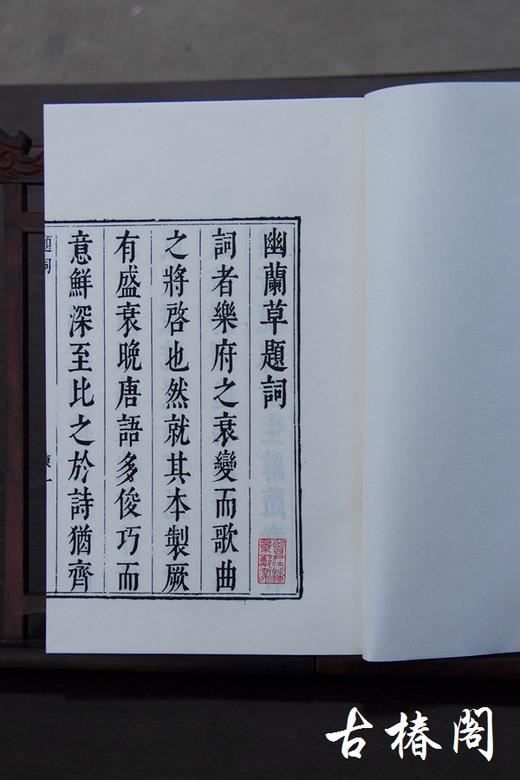 幽蘭草題詞
詞者樂府之衰變而歌曲
之將啓也然就其本製厥
有盛衰晚唐語多俊巧而
意鮮深至比之於詩猶齊
題詞
古椿閣